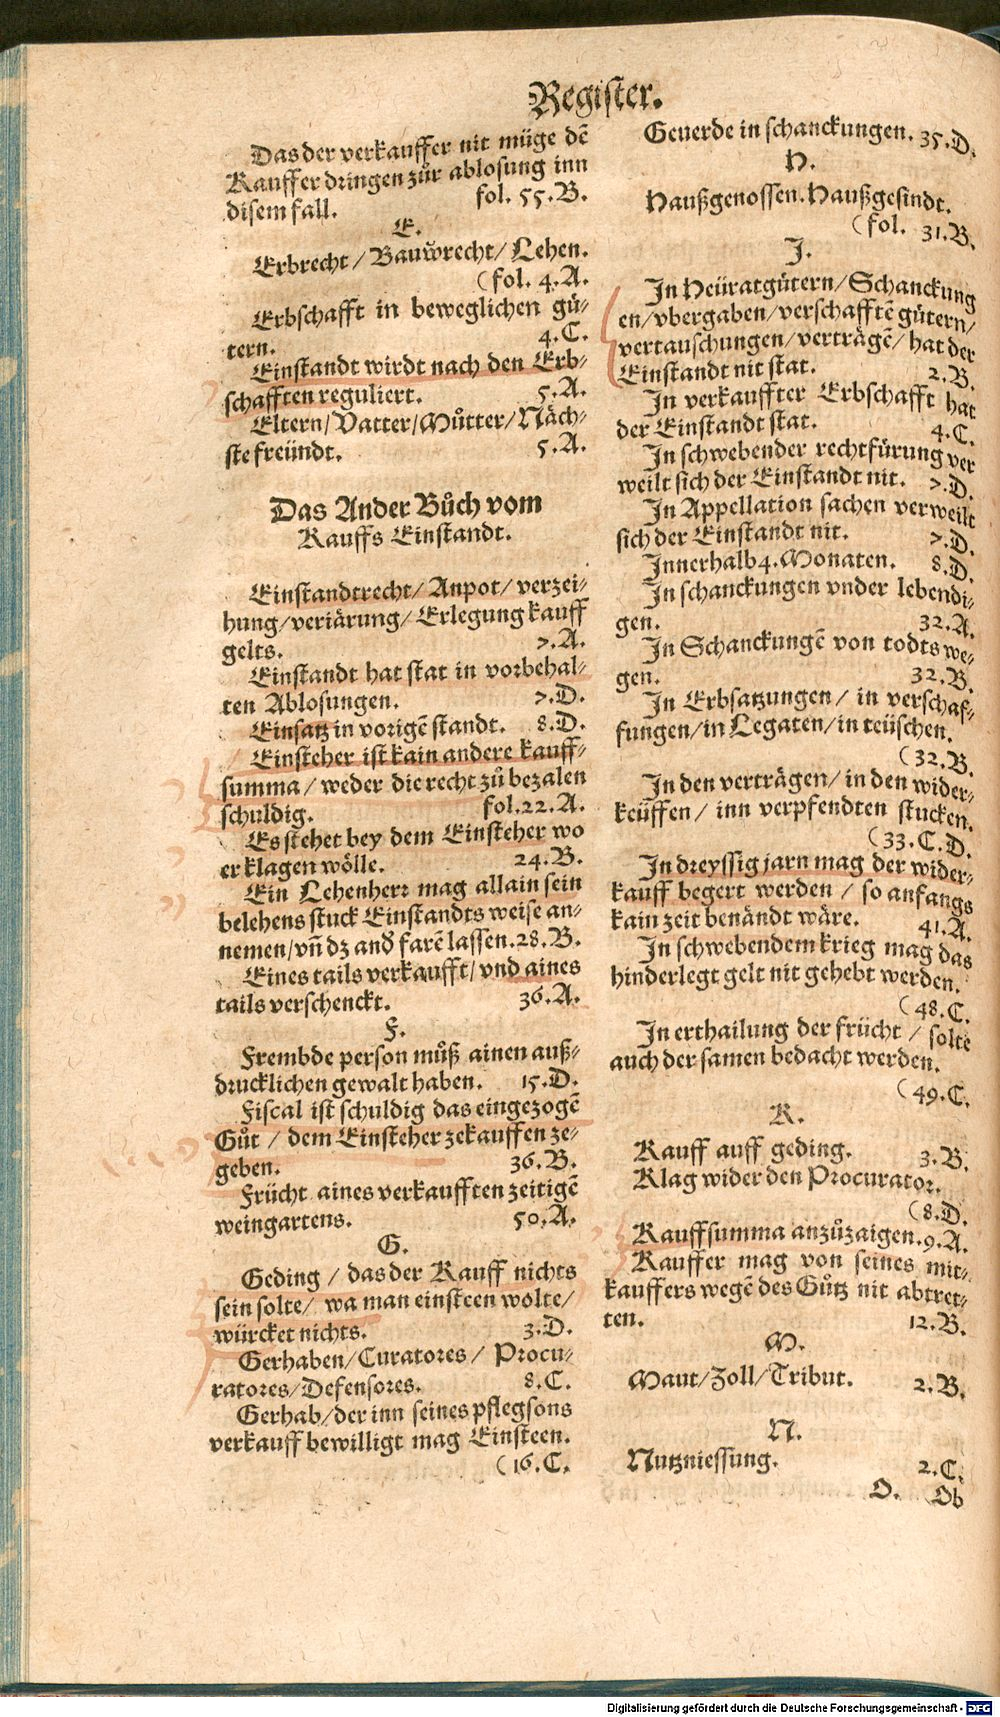 Register.
Das der verkauffer nit müge dē
Kauffer dringen zůr ablosung inn
disem fall. fol. 55.B.
E.
Erbrecht/Bauwrecht/Lehen.
(fol. 4.A.
Erbschafft in beweglichen gü-
tern. 4.C.
Einstandt wirdt nach den Erb-
schafften reguliert. 5.A.
Eltern/Vatter/Můtter/Näch-
ste freündt. 5.A.
Das Ander Bůch vom
Kauffs Einstandt.
Einstandtrecht/Anpot/verzei-
hung/veriärung/Erlegung kauff
gelts. 7.A.
Einstandt hat stat in vorbehal-
ten Ablosungen. 7.D.
Einsatz in vorigē standt. 8.D.
Einsteher ist kain andere kauff-
summa/weder die recht zů bezalen
schuldig. fol.22.A.
Es stehet bey dem Einsteher wo
er klagen wölle. 24.B.
Ein Lehenherr mag allain sein
belehens stuck Einstandts weise an-
nemen/vn̄ dz and̄ farē lassen.28.B.
Eines tails verkaufft/vnd aines
tails verschenckt. 36.A.
F.
Frembde person můß ainen auß-
drucklichen gewalt haben. 15.D.
Fiscal ist schuldig das eingezogē
Gůt/dem Einsteher zekauffen ze-
geben. 36.B.
Frücht aines verkaufften zeitigē
weingartens. 50.A.
G.
Geding/das der Kauff nichts
sein solte/wa man einsteen wolte/
würcket nichts. 3.D.
Gerhaben/Curatores/Procu-
ratores/Defensores. 8.C.
Gerhab/der inn seines pflegsons
verkauff bewilligt mag Einsteen.
(16.C.
Geuerde in schanckungen. 35.D.
H.
Haußgenossen. Haußgesindt.
(fol. 31.B.
J.
In Heüratgütern/Schanckung
en/vbergaben/verschafftē gütern/
vertauschungen/verträgē/hat der
Einstandt nit stat. 2.B.
In verkauffter Erbschafft hat
der Einstandt stat. 4.C.
In schwebender rechtfürung ver
weilt sich der Einstandt nit. 7.D.
In Appellation sachen verweilt
sich der Einstandt nit. 7.D.
Innerhalb 4. Monaten. 8.D.
In schanckungen vnder lebendi-
gen. 32.A.
In Schanckungē von todts we-
gen. 32.B.
In Erbsatzungen/in verschaf-
fungen/in Legaten/in teüschen.
(32.B.
In den verträgen/in den wider-
keüffen/inn verpfendten stucken.
(33.C.D.
In dreyssig jarn mag der wider-
kauff begert werden/so anfangs
kain zeit benändt wäre. 41.A.
In schwebendem krieg mag das
hinderlegt gelt nit gehebt werden.
(48.C.
In erthailung der frücht/solte
auch der samen bedacht werden.
(49.C.
K.
Kauff auff geding. 3.B.
Klag wider den Procurator.
(8.D.
Kauffsumma anzůzaigen.9.A.
Kauffer mag von seines mit-
kauffers wegē des Gůtz nit abtret-
ten. 12.B.
M.
Maut/Zoll/Tribut. 2.B.
N.
Nutzniessung. 2.C.
O. Ob
Digitalisierung gefördert durch die Deutsche Forschungsgemeinschaft - DFG